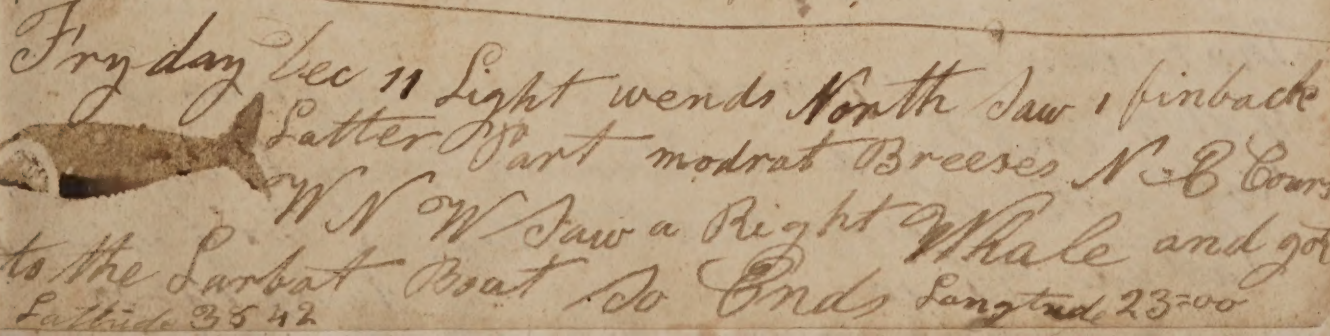 Fryday Dec 11 Light wends North Saw 1 finback
Latter Part modrat Breeses N-E Cours
W N W Saw a Right Whale and got
to the Larbat Boat So Ends Langtud 23=00
Lattitude 35 42